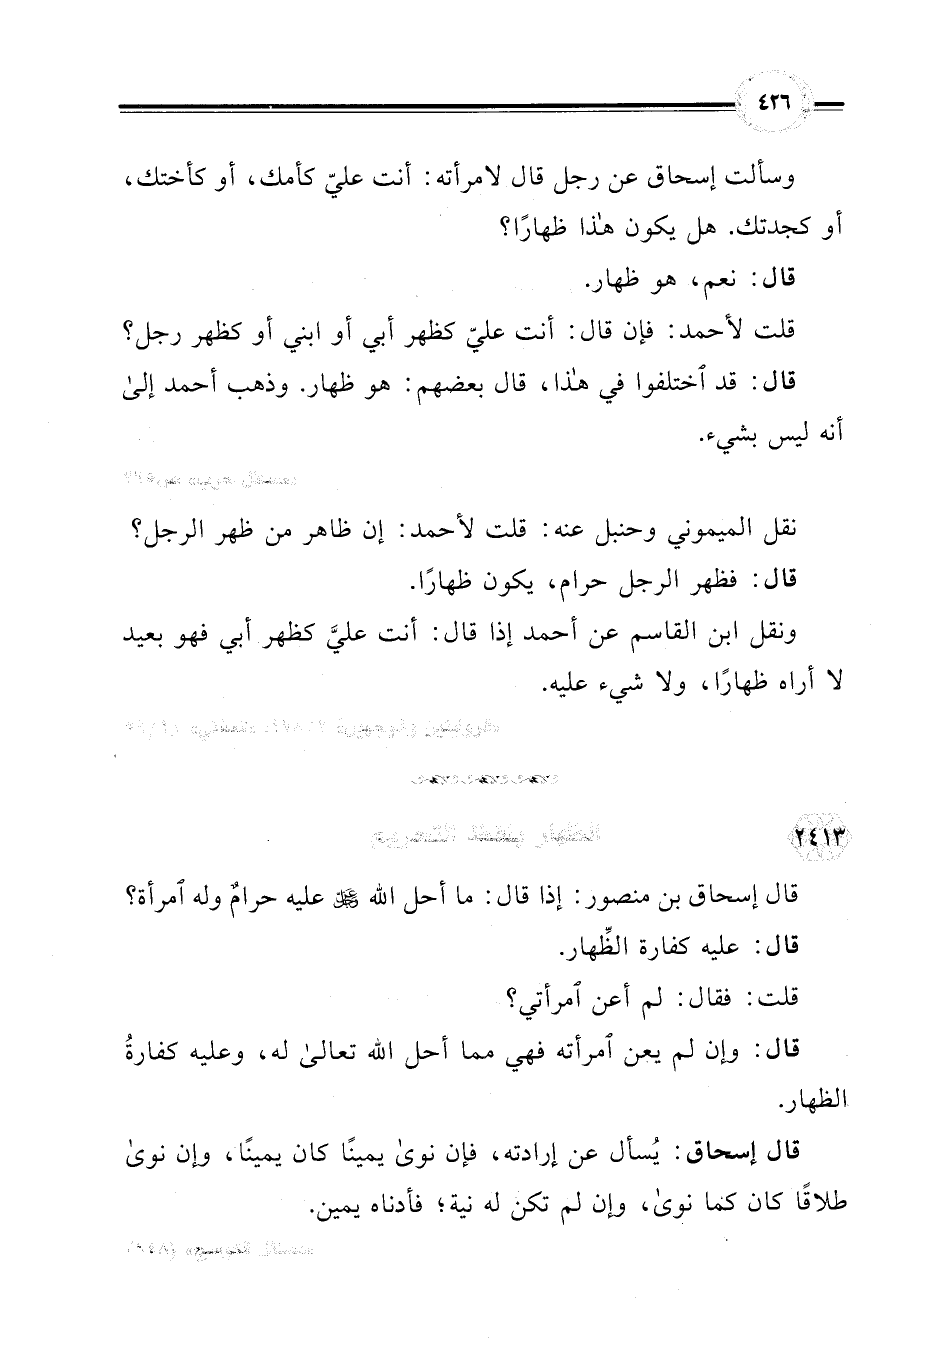 ٤٢٦
وسألت إسحاق عن رجل قال لامرأته: أنت عليّ كأمك، أو كأختك،
أو كجدتك. هل يكون هذا ظهارًا؟
قال: نعم، هو ظهار.
قلت لأحمد: فإن قال: أنت عليّ كظهر أبي أو ابني أو كظهر رجل؟
قال: قد ٱختلفوا في هذا، قال بعضهم: هو ظهار. وذهب أحمد إلىٰ
أنه ليس بشيء.
نقل الميموني وحنبل عنه: قلت لأحمد: إن ظاهر من ظهر الرجل؟
قال: فظهر الرجل حرام، يكون ظهارًا.
ونقل ابن القاسم عن أحمد إذا قال: أنت عليَّ كظهر أبي فهو بعيد
لا أراه ظهارًا، ولا شيء عليه.
٢٤١٣
قال إسحاق بن منصور: إذا قال: ما أحل الله ﷺ عليه حرامٌ وله ٱمرأة؟
قال: عليه كفارة الظِّهار.
قلت: فقال: لم أعن ٱمرأتي؟
قال: وإن لم يعن ٱمرأته فهي مما أحل الله تعالىٰ له، وعليه كفارةُ
الظهار.
قال إسحاق: يُسأل عن إرادته، فإن نوىٰ يمينًا كان يمينًا، وإن نوىٰ
طلاقًا كان كما نوىٰ، وإن لم تكن له نية؛ فأدناه يمين.